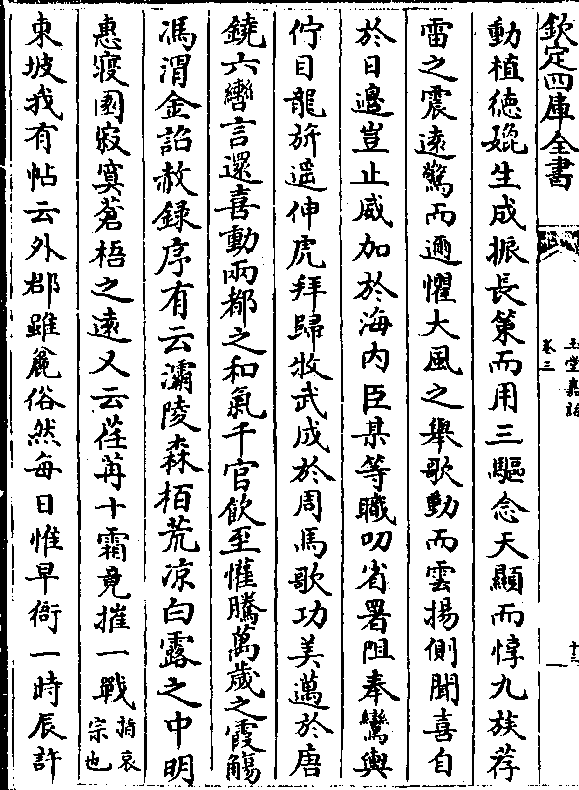 欽定四庫全書
玉堂嘉話
卷三
十三
動植德毓生成振長策而用三驅念天顯而惇九族荐
雷之震遠驚而邇懼大風之舉歌動而雲揚側聞喜自
於日邊豈止威加於海内臣某等職叨省署阻奉鸞輿
佇目龍旂遥伸虎拜歸牧武成於周馬歌功美邁於唐
鐃六轡言還喜動兩都之和氣千官飲至懽騰萬歲之霞觴
馮渭金詔赦録序有云灞陵森栢荒凉白露之中明
惠寢園寂寞蒼梧之遠又云荏苒十霜竟摧一戰指哀宗也
東坡我有帖云外郡雖麄俗然每日惟早衙一時辰許